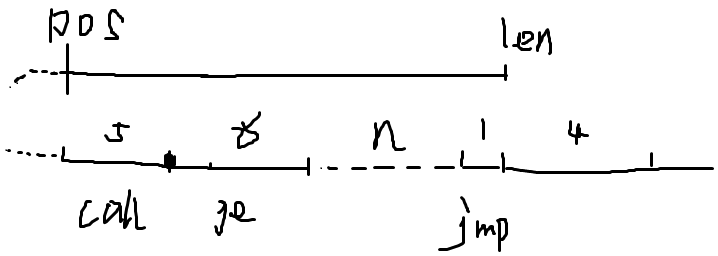 pos len
5 8 n 1 4
call je jmp